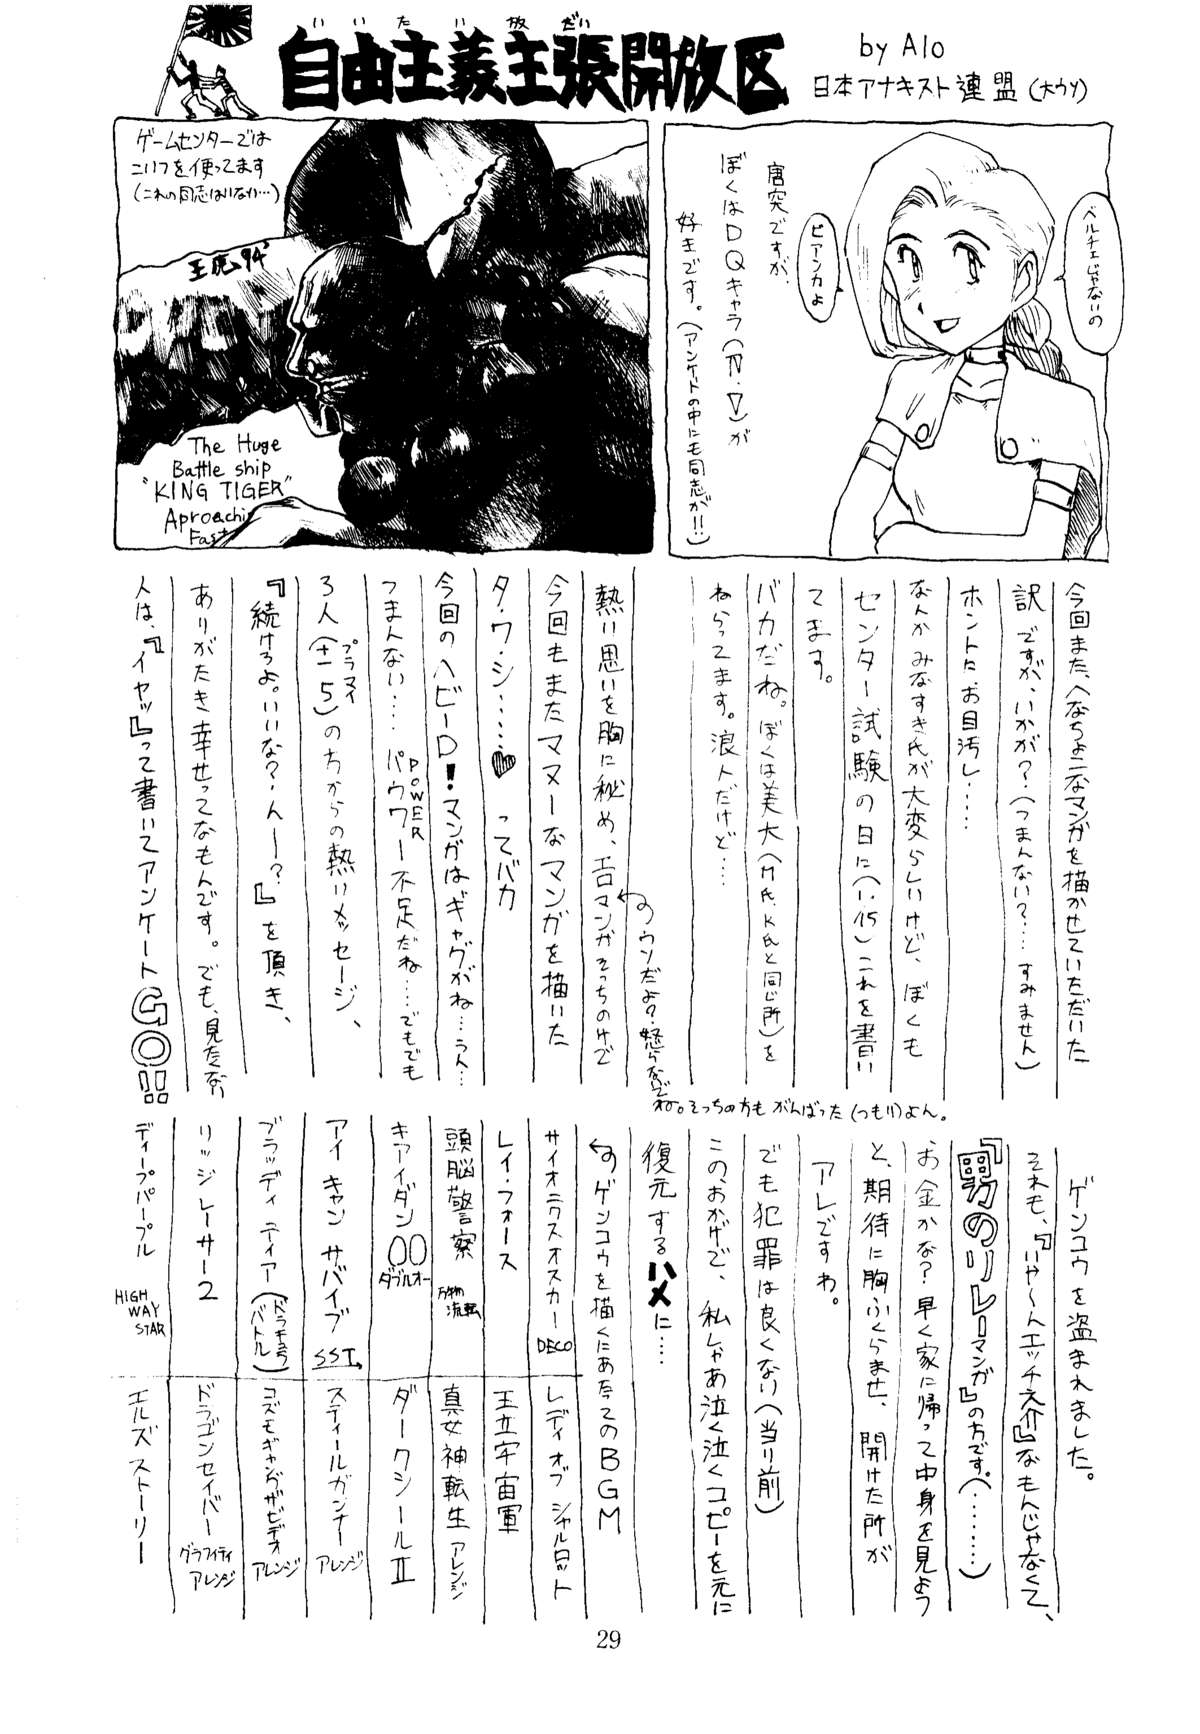 いいたい放だい
自由主義主張開放区
by Alo
日本アナキスト連盟(大ウソ)
ベルチェじゃないの
ビアンカよ
唐突ですが、
ぼくはDQキャラ(Ⅳ・Ⅴ)が
好きです。(アンケートの中にも同志が!!)
ゲームセンターでは
こいつを使ってます
(これの同志はいない…)
王虎94'
The Huge
Battle ship
"KING TIGER"
Aproachi
Fast
今回また、へなちょこなマンガを描かせていただいた
訳ですが、いかが?(つまんない?…すみません)
ホントに、お目汚し……
なんかみなすき氏が大変らしいけど、ぼくも
センター試験の日に(1.15)これを書い
てます。
バカだね。ぼくは美大(M氏、K氏と同じ所)を
ねらってます。浪人だけど……
熱い思いを胸に秘め、エロマンガそっちのけで
のウソだよ?怒らないで
ね。そっちの方もがんばった(つもり)よん。
今回もまたママヌーなマンガを描いた
タ・ワ・シ……♥ってバカ
今回のヘビーD!マンガはギャグがね…うん…
つまんない……パウワー不足だね……でもでも
POWER
3人(±5)の方からの熱いメッセージ、
プラマイ
『続けろよ。いいな?んー?』を頂き、
ありがたき幸せってなもんです。でも、見たくない
人は、『イヤッ』って書いてアンケートGO!!
ゲンコウを盗まれました。
それも、『いや〜んエッチ介』なもんじゃなくて、
『男のリレーマンガ』の方です。(……)
お金かな?早く家に帰って中身を見よう
と、期待に胸ふくらませ、開けた所が
アレですわ。
でも犯罪は良くない(当り前)
この、おかげで、私しゃあ泣く泣くコピーを元に
復元するハメに……
のゲンコウを描くにあたってのBGM
サイオニクスオスカー DECO
レイ・フォース
頭脳警察 万物流転
キアイダン00 ダブルオー
アイ キャン サバイブ SST
ブラッディ ティアー(ドラキュラバトル)
リッジレーサー2
ディープパープル HIGH WAY STAR
レディ オブ シャルロット
王立宇宙軍
真女神転生 アレンジ
ダークシールⅡ
スティールガンナー アレンジ
コズモギャングザビデオ アレンジ
ドラゴンセイバー グラフィティ アレンジ
エルズストーリー
29